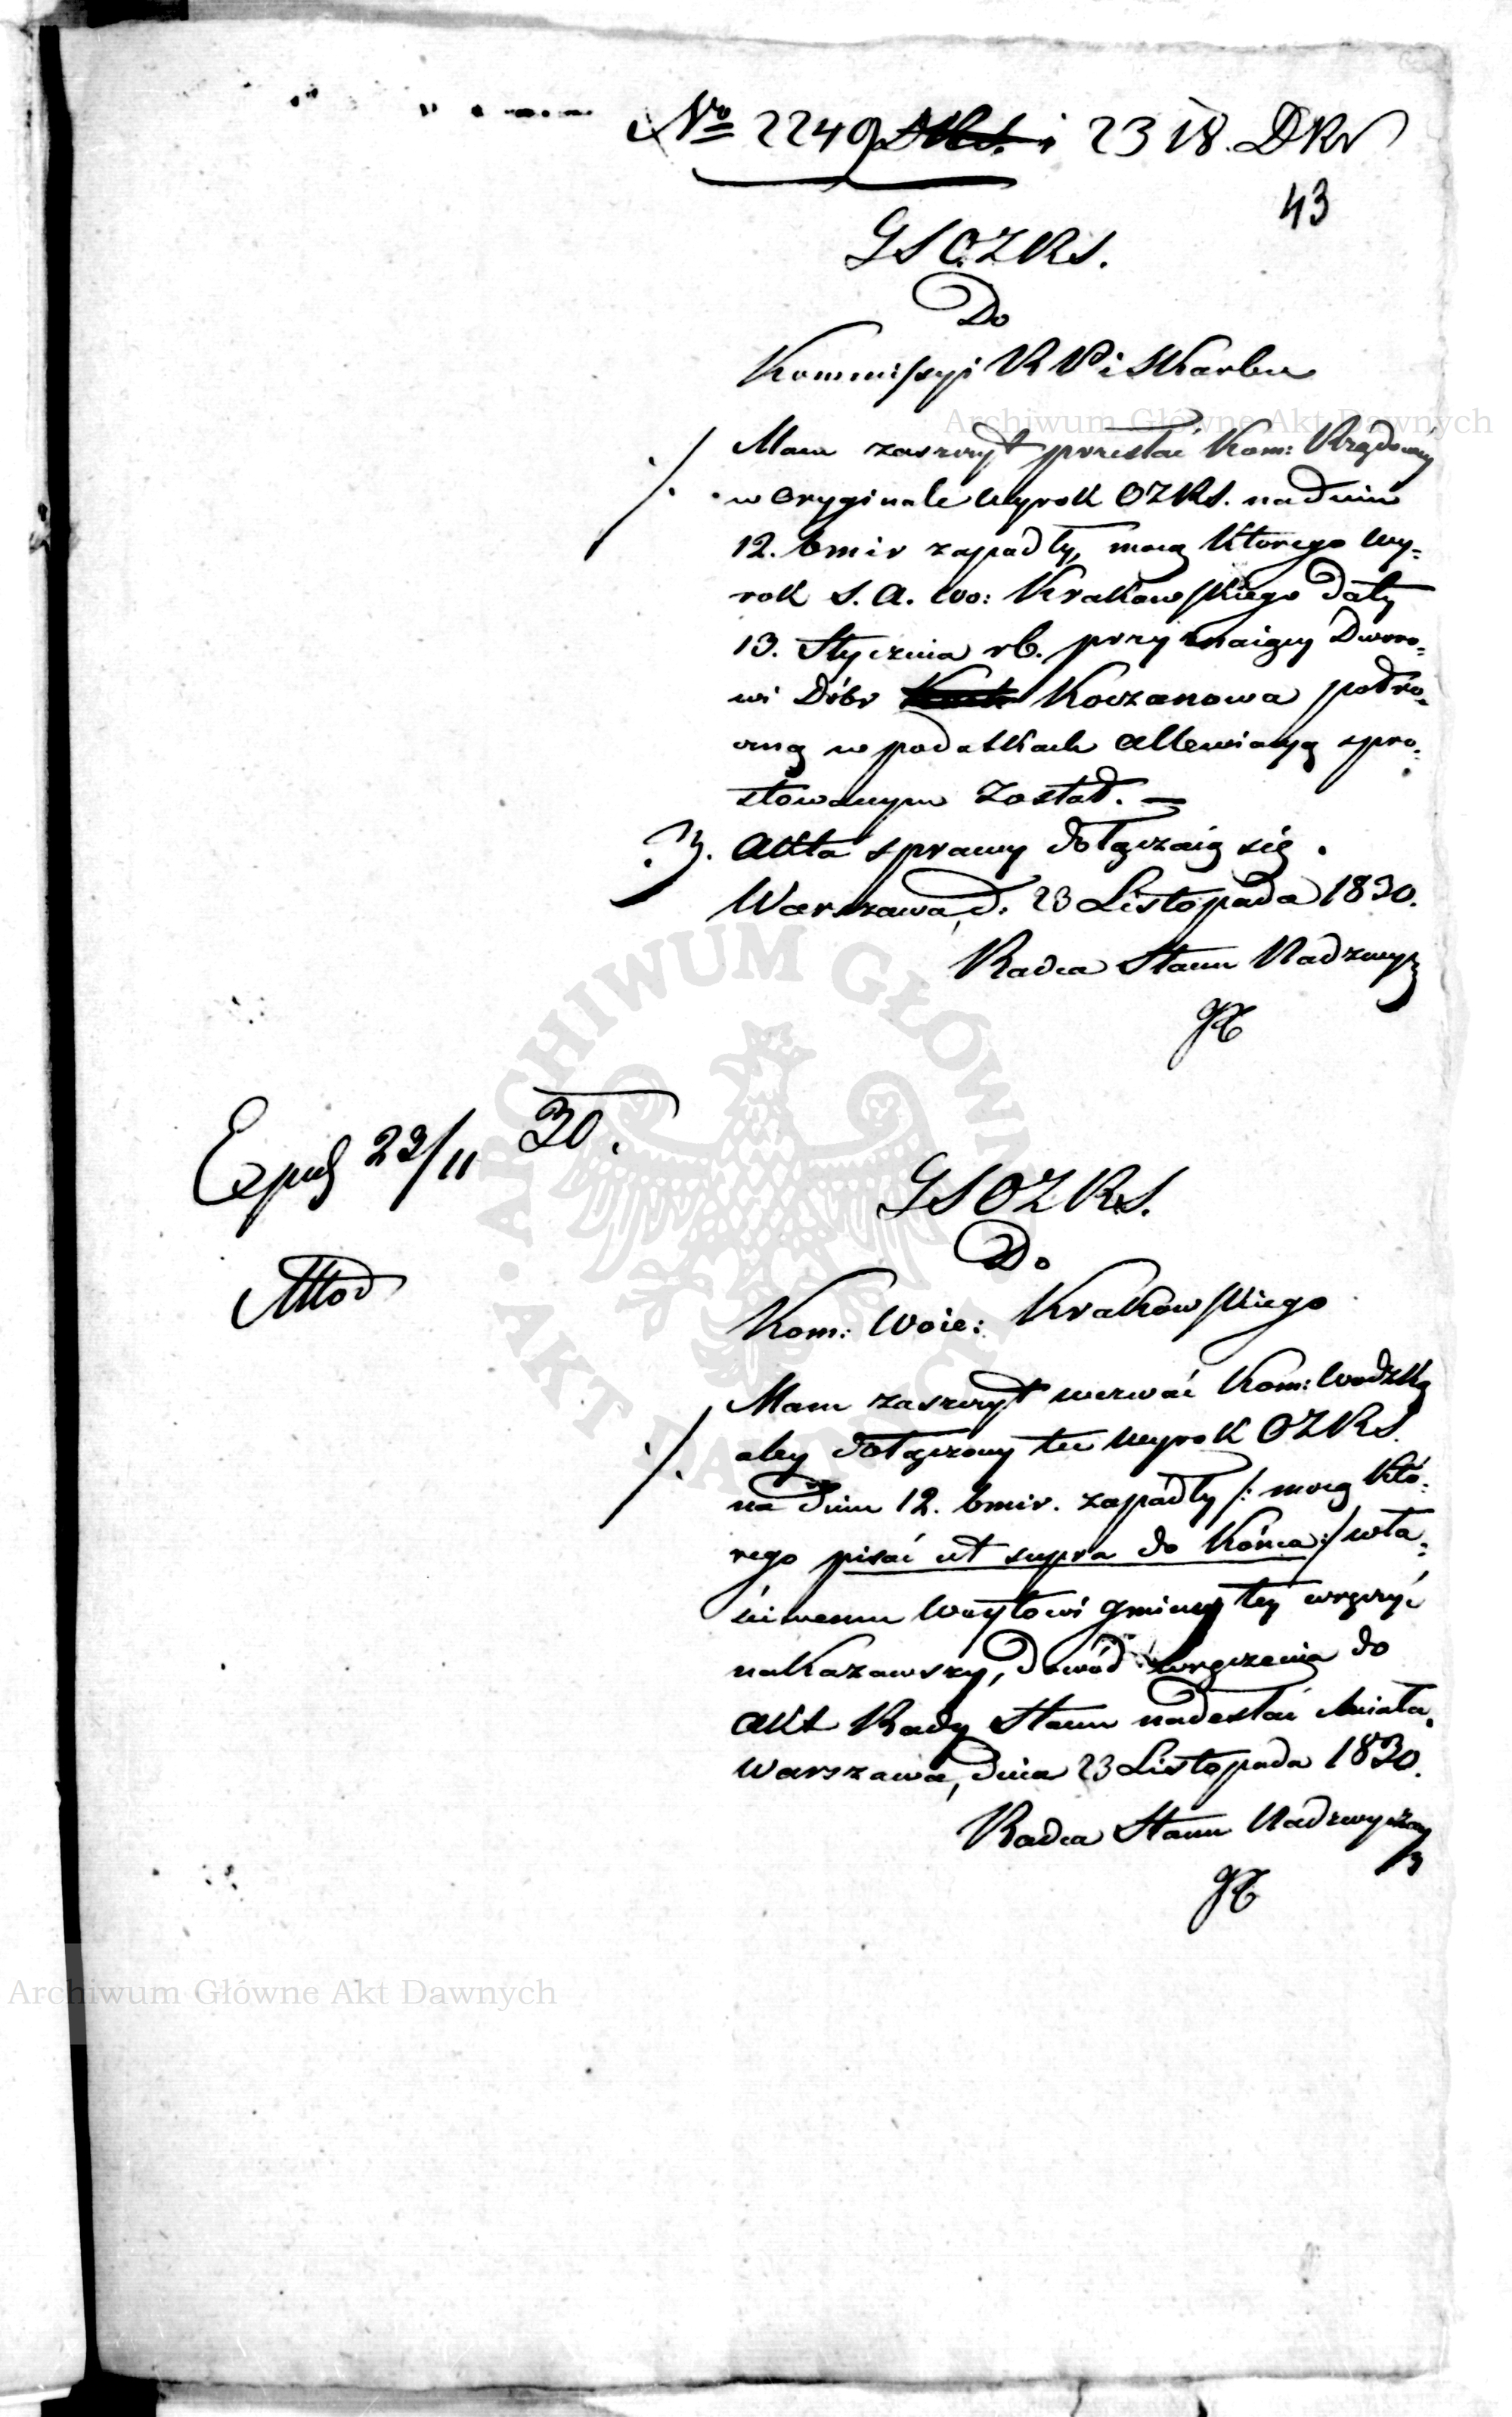 No 2249 i 2318. DKr
43
GSOZRS.
Do
Kommissyi R P i Skarbu
Mam zaszczyt przesłać Kom: Rządowéy
w oryginale wyrok OZRS. na dniu
12. bmir zapadły, mocą którego wy=
rok S. A. Wo: Krakowskiego daty
13. Stycznia rb. przyznaiący Dworo=
wi Dóbr Koczanowa
w podatkach allewiacyą spro=
stowanym został. —
3. Akta sprawy dołączaią się.
Warszawa, d. 23 Listopada 1830.
Radca Stanu Nadzwycz
Exped 23/11 30.
GSOZRS.
Do
Kom: Woie: Krakowskiego
Mam zaszczyt wezwać Kom: Wodzką
aby dołączony tu wyrok OZRS.
na dniu 12. bmir. zapadły /: mocą któ=
rego pisać ut supra do końca :/ wła=
ściwemu Woytowi gminy tey wręczyć
nakazawszy, dowód wręczenia do
Akt Rady Stanu nadesłać chciała.
Warszawa, dnia 23 Listopada 1830.
Radca Stanu Nadzwyczay
Archiwum Główne Akt Dawnych
ARCHIWUM GŁÓWNE AKT DAWNYCH
Archiwum Główne Akt Dawnych